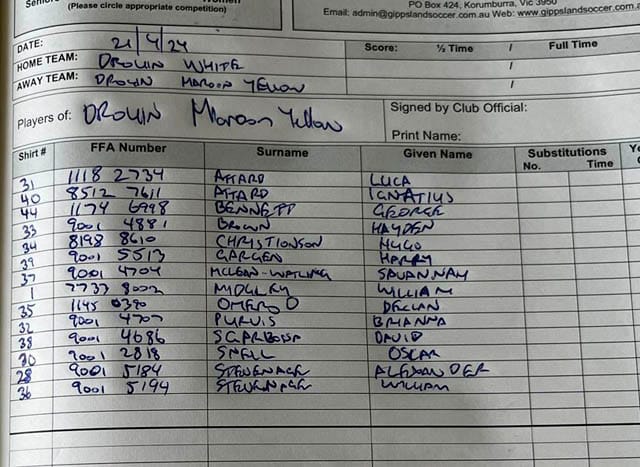 Seniors
(Please circle appropriate competition)
PO Box 424, Korumburra, Vic 3950
Email: admin@gippslandsoccer.com.au Web: www.gippslandsoccer.com.a
DATE: 21/4/24 Score: ½ Time / Full Time
HOME TEAM: DROUIN WHITE /
AWAY TEAM: DROUIN MAROON YELLOW /
Players of: DROUIN Maroon Yellow Signed by Club Official:
Print Name:
Shirt # FFA Number Surname Given Name Substitutions
No. Time
31 1118 2734 ATTARD LUCA
40 8512 7611 ATTARD IGNATIUS
44 1174 6998 BENNETT GEORGE
33 9001 4881 BROWN HAYDEN
34 8198 8610 CHRISTIONSON HUGO
39 9001 5513 GARGEN HARRY
37 9001 4704 MCLEAN-WATLING SAVANNAH
1 7737 8002 WILLIAM
35 1145 0390 OMEROD DECLAN
32 9001 4707 PURVIS BRIANNA
38 9001 4686 SCARBOSSA DAVID
30 9001 2818 SNELL OSCAR
28 9001 5184 STEVENAGE ALEXANDER
36 9001 5194 STEVENAGE WILLIAM